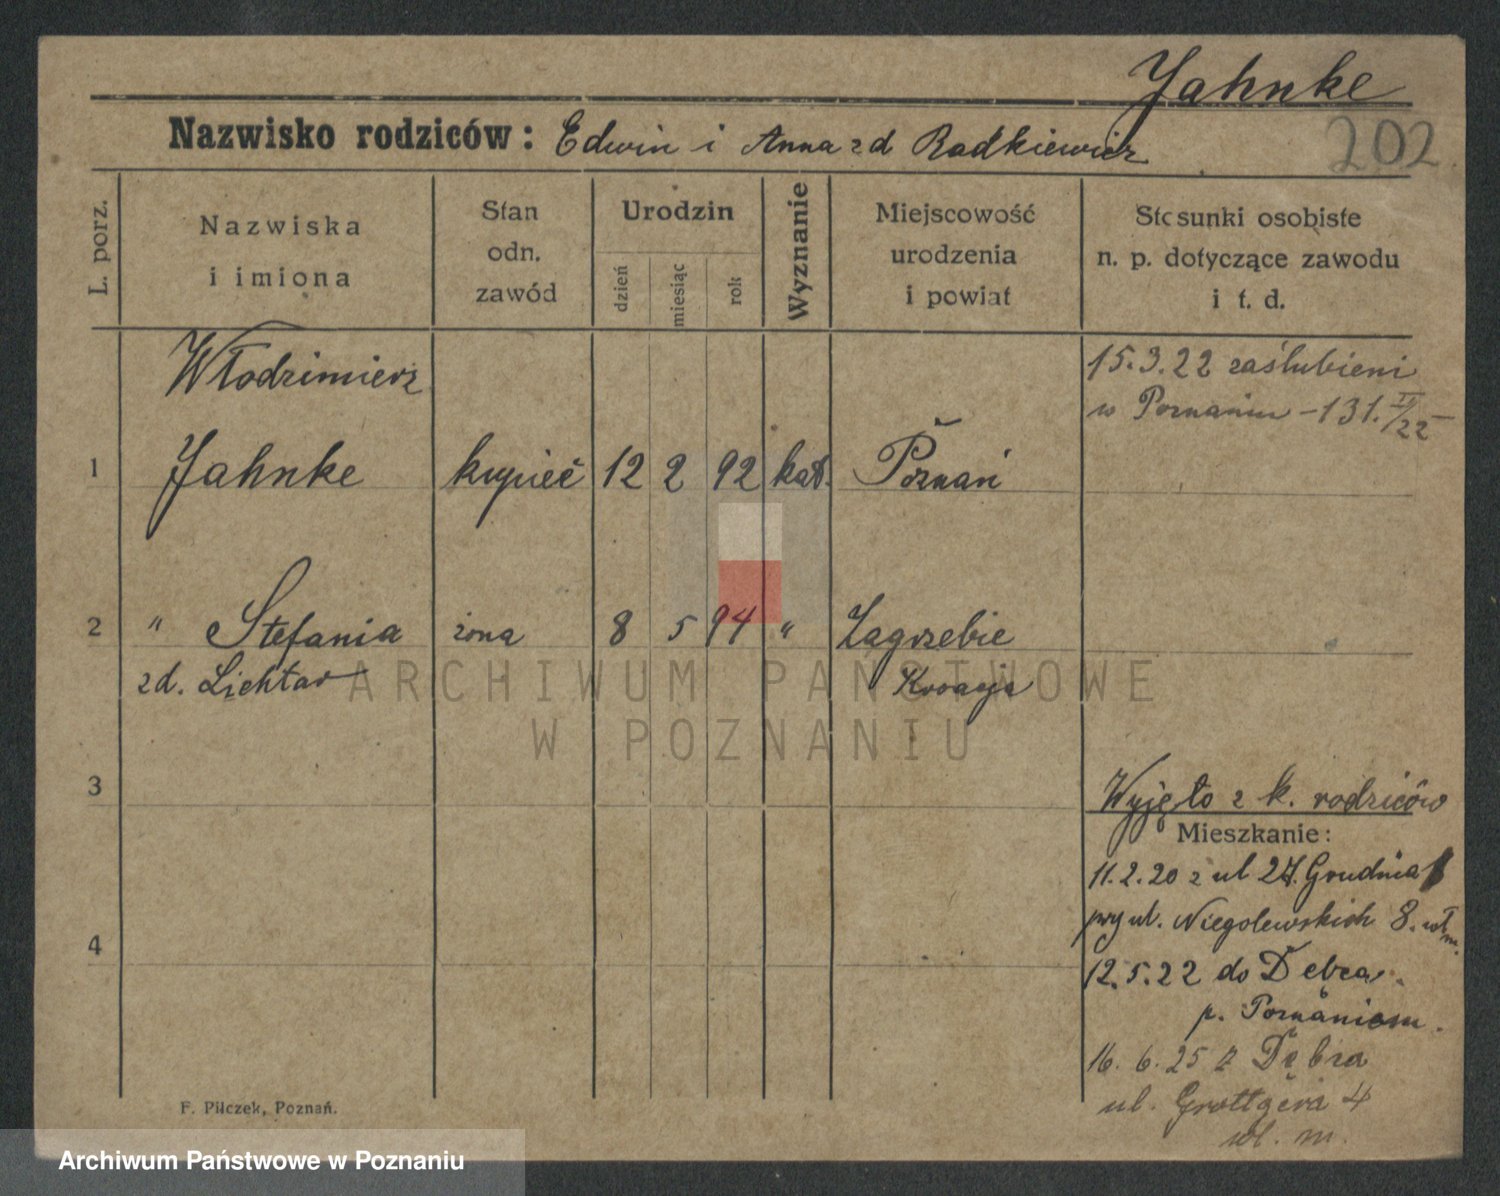 Jahnke
Nazwisko rodziców: Edwin i Anna zd Radkiewicz
202
L. porz.
Nazwiska
i imiona
Stan
odn.
zawód
Urodzin
dzień
miesiąc
rok
Wyznanie
Miejscowość
urodzenia
i powiat
Stosunki osobiste
n. p. dotyczące zawodu
i t. d.
Włodzimierz
15.3.22 zaślubieni
w Poznaniu - 131. IV/22
1 Jahnke kupiec 12 2 92 kat. Poznań
2 " Stefania żona 8 5 94 " Zagrzebie
zd. Lichtar Kroacja
ARCHIWUM PAŃSTWOWE
W POZNANIU
3
Wyjęto z k. rodziców
Mieszkanie:
11.2.20 z ul 27. Grudnia
przy ul. Niegolewskich 8. wł m.
4
12.5.22 do Dębca.
p. Poznaniem.
16. 6. 25 z Dębca
ul. Grottgera 4
wł. m.
F. Pilczek, Poznań.
Archiwum Państwowe w Poznaniu